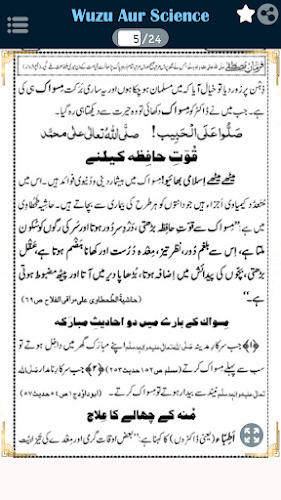 Wuzu Aur Science
5 /24
ذہن پر زور دیا تو خیال آیا کہ میں مسلمان ہو چکا ہوں اور یہ ساری برکت مسواک ہی کی
ہے۔ جب میں نے ڈاکٹر کو مسواک دکھائی تو وہ حیرت سے دیکھتا ہی رہ گیا۔
صَلُّوا عَلَى الْحَبِيب! صلَّى اللهُ تعالٰى علٰى محمَّد
قُوّتِ حافِظہ کیلئے
میٹھے میٹھے اسلامی بھائیو! مسواک میں بیشمار دینی و دُنیوی فوائد ہیں۔ اس میں
مُتَعَدِّد کیمیاوی اَجزاء ہیں جو دانتوں کو ہر طرح کی بیماری سے بچاتے ہیں۔ حاشیۂ طحطاوی
میں ہے: "مسواک سے قوّتِ حافِظہ بڑھتی، دَردِ سر دور ہوتا اور سر کی رگوں کو سُکون
ملتا ہے، اِس سے بلغم دُور، نظر تیز، مِعدہ دُرُست اور کھانا ہَضْم ہوتا ہے، عَقْل
بڑھتی، بچّوں کی پیدائش میں اِضافہ ہوتا، بُڑھاپا دیر میں آتا اور پیٹھ مضبوط ہوتی
ہے۔" (حاشیۃ الطحطاوی علی مراقی الفلاح ص٦٩)
مِسواک کے بارے میں دو احادیثِ مبارَکہ
﴿۱﴾ جب سرکارِ مدینہ صلَّى الله تعالٰى عليه واٰلهٖ وسلَّم اپنے مبارَک گھر میں داخِل ہوتے تو
سب سے پہلے مسواک کرتے (مسلم ص١٥٢ حدیث٢٥٣) ﴿۲﴾ جب سرکارِ نامدار صلَّى الله
تعالٰى عليه واٰلهٖ وسلَّم نیند سے بیدار ہوتے تو مسواک کرتے۔ (ابوداوٗد ج١ ص٥٤ حدیث٥٧)
مُنہ کے چھالے کا عِلاج
اَطِبّاء (یعنی ڈاکٹروں) کا کہنا ہے: "بعض اوقات گرمی اور مِعدے کی تیزابیّت